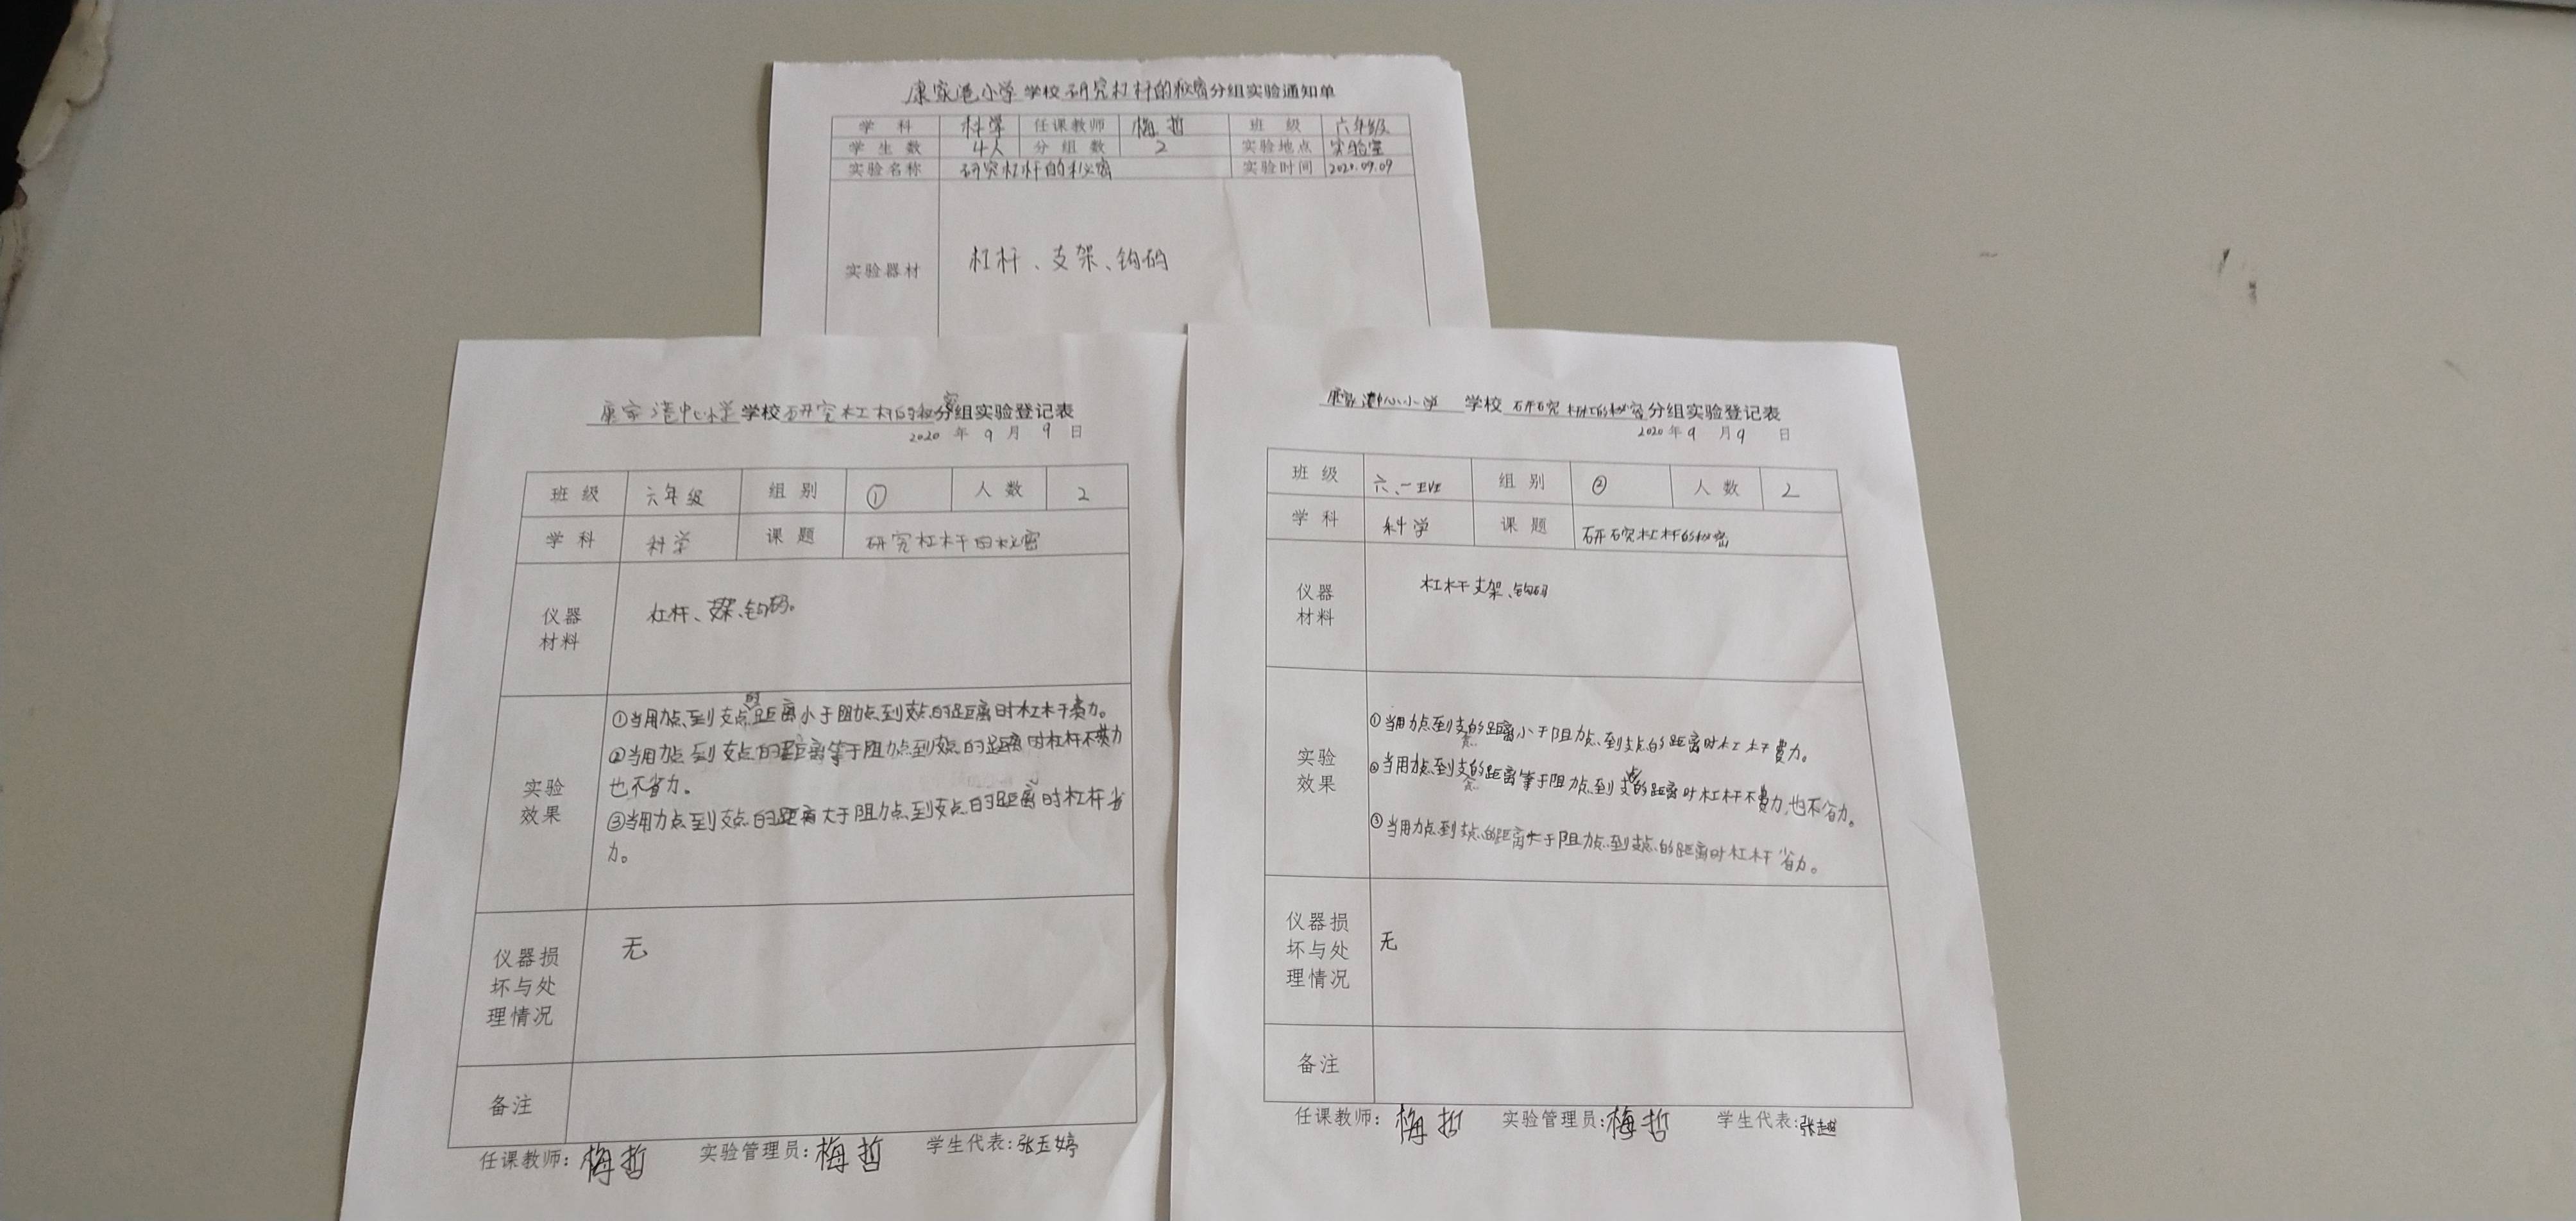 康家港小学学校研究杠杆的秘密分组实验通知单
学科 科学 任课教师 梅哲 班级 六年级
学生数 4人 分组数 2 实验地点 实验室
实验名称 研究杠杆的秘密 实验时间 2020.09.09
实验器材 杠杆、支架、钩码
康家港中心小学学校研究杠杆的秘密分组实验登记表
2020年9月9日
班级 六年级 组别 ① 人数 2
学科 科学 课题 研究杠杆的秘密
仪器
材料
杠杆、支架、钩码。
实验
效果
①当用力点到支点的距离小于阻力点到支点的距离时杠杆费力。
②当用力点到支点的距离等于阻力点到支点的距离时杠杆不费力
也不省力。
③当用力点到支点的距离大于阻力点到支点的距离时杠杆省
力。
仪器损
坏与处
理情况
无
备注
任课教师：梅哲 实验管理员：梅哲 学生代表：张玉婷
康家港中心小学 学校 研究杠杆的秘密分组实验登记表
2020年9月9日
班级 六、一 组别 ② 人数 2
学科 科学 课题 研究杠杆的秘密
仪器
材料
杠杆支架、钩码
实验
效果
①当用力点到支点的距离小于阻力点到支点的距离时杠杆费力。
②当用力点到支点的距离等于阻力点到支点的距离时杠杆不费力,也不省力。
③当用力点到支点的距离大于阻力点到支点的距离时杠杆省力。
仪器损
坏与处
理情况
无
备注
任课教师：梅哲 实验管理员：梅哲 学生代表：张越